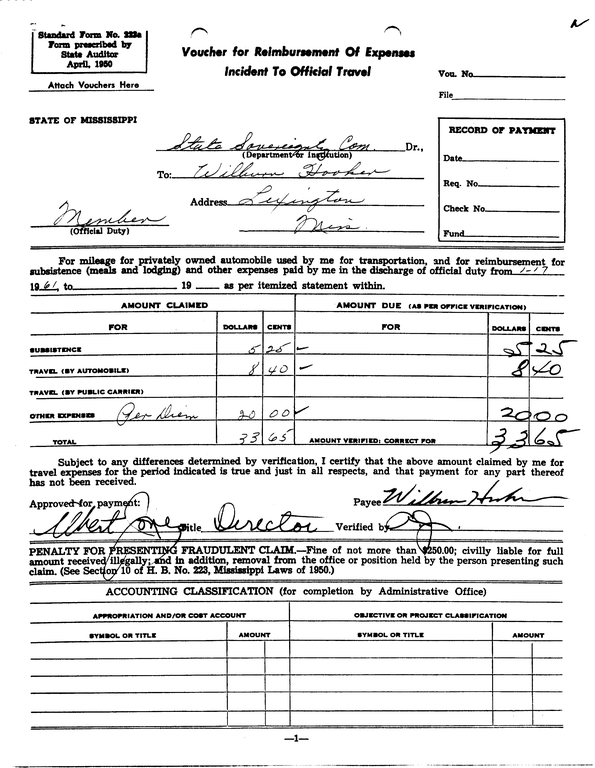 Standard Form No. 223a
Form prescribed by
State Auditor
April, 1950
Attach Vouchers Here
Voucher for Reimbursement Of Expenses
Incident To Official Travel
Vou. No.
File
STATE OF MISSISSIPPI
State Sovereignty Com. Dr.,
(Department or Institution)
To: Wilburn Hooker
Address Lexington
Miss.
Member
(Official Duty)
RECORD OF PAYMENT
Date
Req. No.
Check No.
Fund
For mileage for privately owned automobile used by me for transportation, and for reimbursement for
subsistence (meals and lodging) and other expenses paid by me in the discharge of official duty from 1-17
1961, to 19 as per itemized statement within.
AMOUNT CLAIMED AMOUNT DUE (AS PER OFFICE VERIFICATION)
FOR DOLLARS CENTS FOR DOLLARS CENTS
SUBSISTENCE 5 25 5 25
TRAVEL (BY AUTOMOBILE) 8 40 8 40
TRAVEL (BY PUBLIC CARRIER)
OTHER EXPENSES Per Diem 20 00 20 00
TOTAL 33 65 AMOUNT VERIFIED: CORRECT FOR 33 65
Subject to any differences determined by verification, I certify that the above amount claimed by me for
travel expenses for the period indicated is true and just in all respects, and that payment for any part thereof
has not been received.
Approved for payment: Payee Wilburn Hooker
Albert Jones Title Director Verified by
PENALTY FOR PRESENTING FRAUDULENT CLAIM.—Fine of not more than $250.00; civilly liable for full
amount received illegally; and in addition, removal from the office or position held by the person presenting such
claim. (See Section 10 of H. B. No. 223, Mississippi Laws of 1950.)
ACCOUNTING CLASSIFICATION (for completion by Administrative Office)
APPROPRIATION AND/OR COST ACCOUNT OBJECTIVE OR PROJECT CLASSIFICATION
SYMBOL OR TITLE AMOUNT SYMBOL OR TITLE AMOUNT
—1—